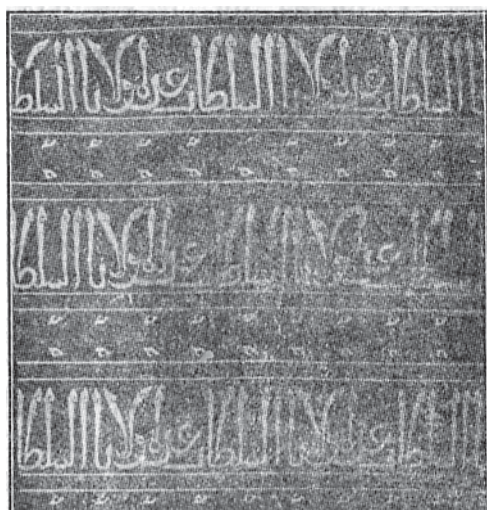 السلطان عز لمولانا السلطان عز لمولانا السلطا
السلطان عز لمولانا السلطان عز لمولانا السلطا
السلطان عز لمولانا السلطان عز لمولانا السلطا